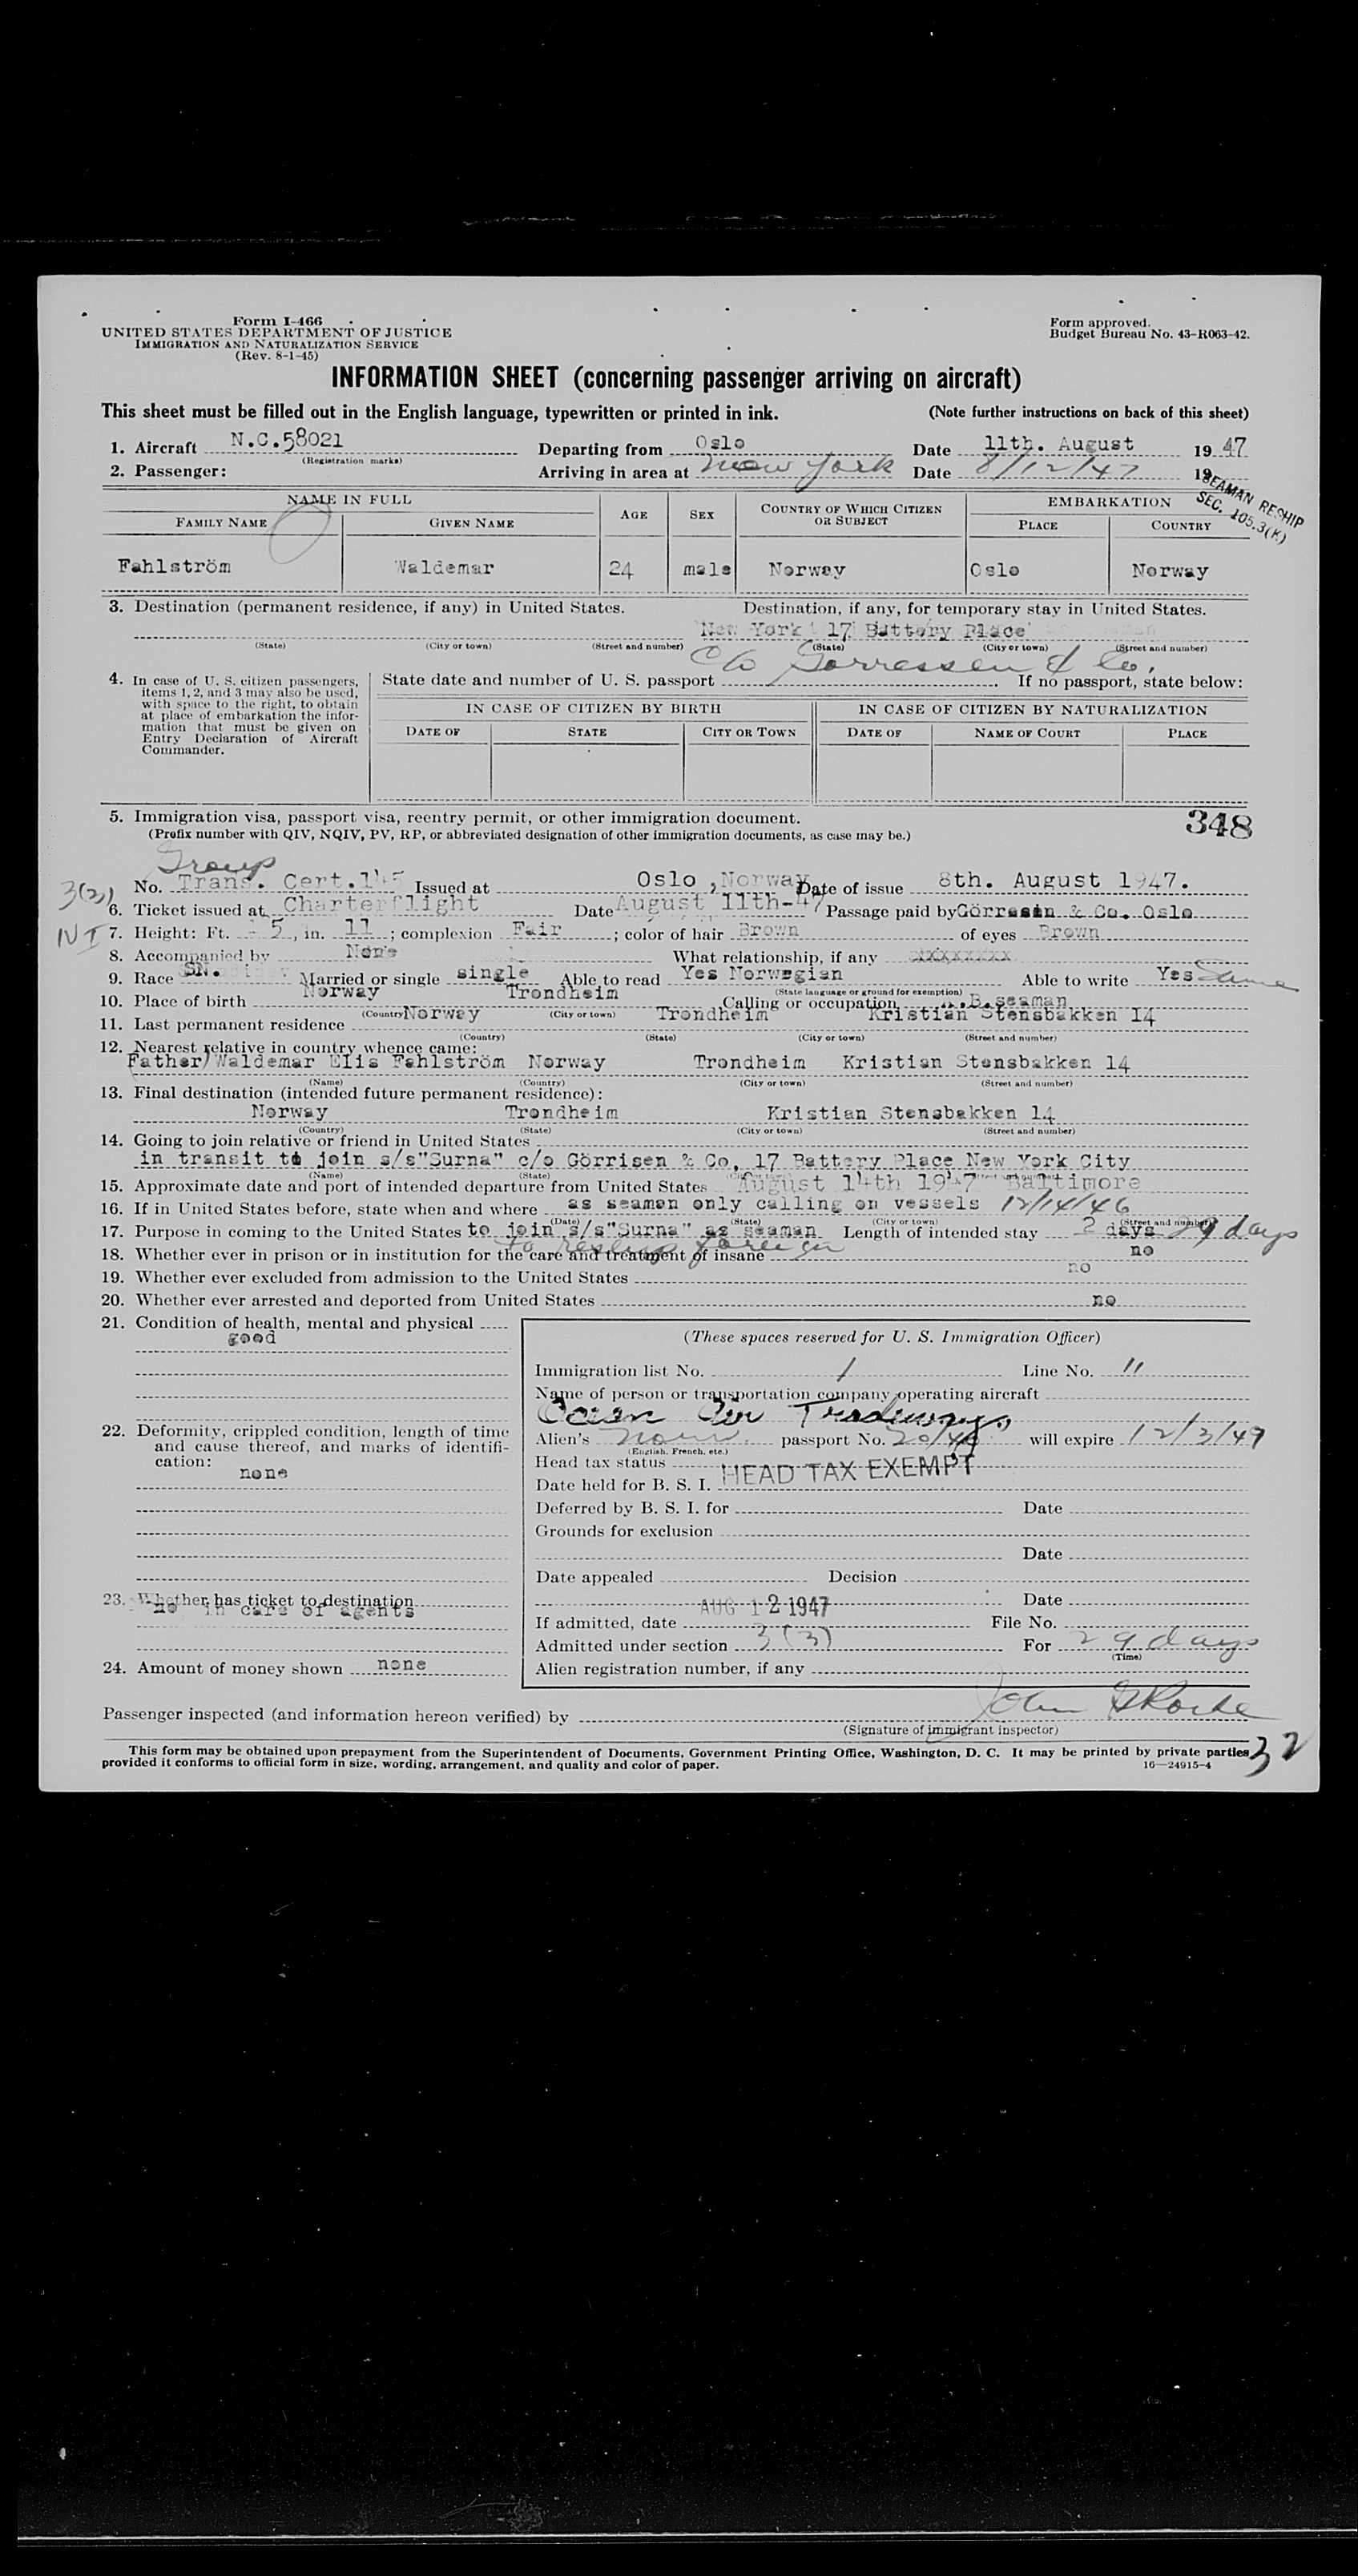 Form I-466
UNITED STATES DEPARTMENT OF JUSTICE
IMMIGRATION AND NATURALIZATION SERVICE
(Rev. 8-1-45)
Form approved.
Budget Bureau No. 43-R063-42.
INFORMATION SHEET (concerning passenger arriving on aircraft)
This sheet must be filled out in the English language, typewritten or printed in ink. (Note further instructions on back of this sheet)
1. Aircraft N.C.58021 Departing from Oslo Date 11th. August 19 47
(Registration marks)
2. Passenger: Arriving in area at New York Date 8/12/47 19
SEAMAN RESHIP
SEC. 105.3(K)
NAME IN FULL AGE SEX COUNTRY OF WHICH CITIZEN OR SUBJECT EMBARKATION
FAMILY NAME GIVEN NAME PLACE COUNTRY
Fahlström Waldemar 24 male Norway Oslo Norway
3. Destination (permanent residence, if any) in United States. Destination, if any, for temporary stay in United States.
New York 17 Battery Place
(State) (City or town) (Street and number) (State) (City or town) (Street and number)
C/o Gorressen & Co.
4. In case of U. S. citizen passengers, items 1, 2, and 3 may also be used, with space to the right, to obtain at place of embarkation the information that must be given on Entry Declaration of Aircraft Commander.
State date and number of U. S. passport If no passport, state below:
IN CASE OF CITIZEN BY BIRTH IN CASE OF CITIZEN BY NATURALIZATION
DATE OF STATE CITY OR TOWN DATE OF NAME OF COURT PLACE
5. Immigration visa, passport visa, reentry permit, or other immigration document.
348
(Prefix number with QIV, NQIV, PV, RP, or abbreviated designation of other immigration documents, as case may be.)
Group
3(3)
No. Trans. Cert.145 Issued at Oslo, Norway Date of issue 8th. August 1947.
6. Ticket issued at Charterflight Date August 11th-47 Passage paid by Görresin & Co. Oslo
IV I
7. Height: Ft. 5, in. 11; complexion Fair; color of hair Brown of eyes Brown
8. Accompanied by None What relationship, if any xxxxxxxxx
9. Race SN. Married or single single Able to read Yes Norwegian Able to write Yes Same
(State language or ground for exemption)
10. Place of birth Norway Trondheim Calling or occupation A.B.seaman
(Country) (City or town)
11. Last permanent residence Norway Trondheim Kristian Stensbakken 14
(Country) (State) (City or town) (Street and number)
12. Nearest relative in country whence came:
Father) Waldemar Elis Fahlström Norway Trondheim Kristian Stensbakken 14
(Name) (Country) (City or town) (Street and number)
13. Final destination (intended future permanent residence):
Norway Trondheim Kristian Stensbakken 14
(Country) (State) (City or town) (Street and number)
14. Going to join relative or friend in United States
in transit to join s/s"Surna" c/o Görrisen & Co, 17 Battery Place New York City
(Name) (State)
15. Approximate date and port of intended departure from United States August 14th 1947 Baltimore
16. If in United States before, state when and where as seaman only calling on vessels 12/14/46
(Date) (State) (City or town) (Street and number)
17. Purpose in coming to the United States to join s/s"Surna" as seaman Length of intended stay 2 days 29 days
to reship foreign
18. Whether ever in prison or in institution for the care and treatment of insane no
19. Whether ever excluded from admission to the United States no
20. Whether ever arrested and deported from United States no
21. Condition of health, mental and physical
good
22. Deformity, crippled condition, length of time and cause thereof, and marks of identification:
none
23. Whether has ticket to destination
no in care of agents
24. Amount of money shown none
(These spaces reserved for U. S. Immigration Officer)
Immigration list No. 1 Line No. 11
Name of person or transportation company operating aircraft
Ocean Air Tradeways
Alien's Norw. passport No. 20/46 will expire 12/3/49
(English, French, etc.)
Head tax status HEAD TAX EXEMPT
Date held for B. S. I.
Deferred by B. S. I. for Date
Grounds for exclusion
Date
Date appealed Decision
Date
If admitted, date AUG 12 1947 File No.
Admitted under section 3(3) For 29 days
(Time)
Alien registration number, if any
Passenger inspected (and information hereon verified) by John
(Signature of immigrant inspector)
This form may be obtained upon prepayment from the Superintendent of Documents, Government Printing Office, Washington, D. C. It may be printed by private parties
provided it conforms to official form in size, wording, arrangement, and quality and color of paper. 16—24915-4
32